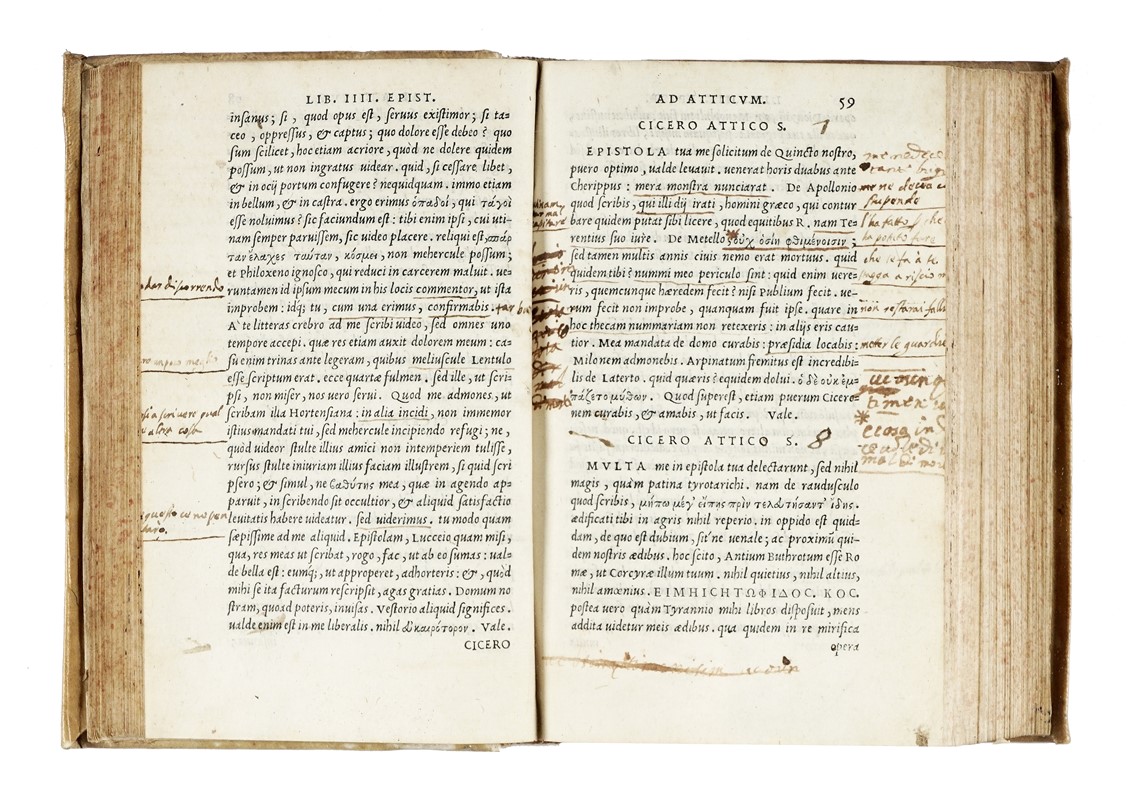 LIB. IIII. EPIST.
insanus; si, quod opus est, seruus existimor; si ta-
ceo, oppressus, & captus; quo dolore esse debeo? quo
sum scilicet, hoc etiam acriore, quòd ne dolere quidem
possum, ut non ingratus uidear. quid, si cessare libet,
& in ocij portum confugere? nequidquam. immo etiam
in bellum, & in castra. ergo erimus ὀπαδοὶ, qui ταγοὶ
esse noluimus? sic faciundum est: tibi enim ipsi, cui uti-
nam semper paruissem, sic uideo placere. reliqui est, σπάρ
ταν ἔλαχες ταύταν, κόσμει, non mehercule possum;
et Philoxeno ignosco, qui reduci in carcerem maluit. ue-
runtamen id ipsum mecum in his locis commentor, ut ista
improbem: idq; tu, cum una erimus, confirmabis.
A' te litteras crebro ad me scribi uideo, sed omnes uno
tempore accepi. quæ res etiam auxit dolorem meum: ca-
su enim trinas ante legeram, quibus meliuscule Lentulo
esse scriptum erat. ecce quartæ fulmen. sed ille, ut scri-
psi, non miser, nos uero ferrei. Quod me admones, ut
scribam illa Hortensiana; in alia incidi, non immemor
istius mandati tui, sed mehercule incipiendo refugi; ne,
quòd uideor stulte illius amici non intemperiem tulisse,
rursus stulte iniuriam illius faciam illustrem, si quid scri
psero; & simul, ne βαθύτης mea, quæ in agendo ap-
paruit, in scribendo sit occultior, & aliquid satisfactio
leuitatis habere uideatur. sed uiderimus. tu modo quam
sæpissime ad me aliquid. Epistolam, Lucceio quam misi,
qua, res meas ut scribat, rogo, fac, ut ab eo sumas: ual-
de bella est: eumq;, ut approperet, adhorteris: &, quòd
mihi se ita facturum rescripsit, agas gratias. Domum no
stram, quoad poteris, inuisas. Vestorio aliquid significes.
ualde enim est in me liberalis. nihil εὐκαιρότερον. Vale.
CICERO
AD ATTICVM. 59
CICERO ATTICO S. 7
EPISTOLA tua me solicitum de Quincto nostro,
puero optimo, ualde leuauit. uenerat horis duabus ante
Cherippus: mera monstra nunciarat. De Apollonio
quod scribis, qui illi dij irati, homini græco, qui contur
bare quidem putat sibi licere, quod equitibus R. nam Te
rentius suo iure. De Metello, οὐχ ὁσίη φθιμένοισιν;
sed tamen multis annis ciuis nemo erat mortuus. quid
quidem tibi? nummi meo periculo sint: quid enim uere-
ris, quemcunque hæredem fecit? nisi Publium fecit. ue-
rum fecit non improbe, quanquam fuit ipse. quare in
hoc thecam nummariam non retexeris: in alijs eris cau-
tior. Mea mandata de domo curabis: præsidia locabis:
Milonem admonebis. Arpinatum fremitus est incredibi-
lis de Laterio. quid quæris? equidem dolui. ὁ δὲ οὐκ ἐμ-
πάζετο μύθων. Quod superest, etiam puerum Cicero-
nem curabis, & amabis, ut facis. Vale.
CICERO ATTICO S. 8
MVLTA me in epistola tua delectarunt, sed nihil
magis, quàm patina tyrotarichi. nam de raudusculo
quod scribis, μήπω μέγ' εἴπῃς πρὶν τελευτήσαντ' ἴδῃς.
ædificati tibi in agris nihil reperio. in oppido est quid-
dam, de quo est dubium, sit'ne uenale; ac proximũ qui-
dem nostris ædibus. hoc scito, Antium Buthrotum esse Ro
mæ, ut Corcyræ illum tuum. nihil quietius, nihil altius,
nihil amœnius. ΕΙΜΗΙϹΗΤΩΦΙΔΟϹ. ΚΟϹ.
postea uero quàm Tyrannio mihi libros disposuit, mens
addita uidetur meis ædibus. qua quidem in re mirifica
opera